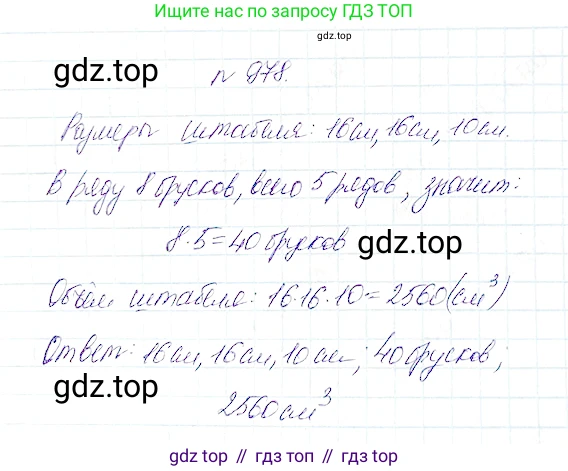 Ищите нас по запросу ГДЗ ТОП
gdz.top
gdz.top
n 978.
Размеры штабеля: 16см, 16см, 10см.
В ряду 8 брусков, всего 5 рядов, значит:
8·5=40 брусков
gdz.top
Объём штабеля: 16·16·10=2560(см³)
Ответ: 16см, 16см, 10см; 40 брусков;
gdz.top
2560 см³
gdz.top // гдз топ // гдз.top